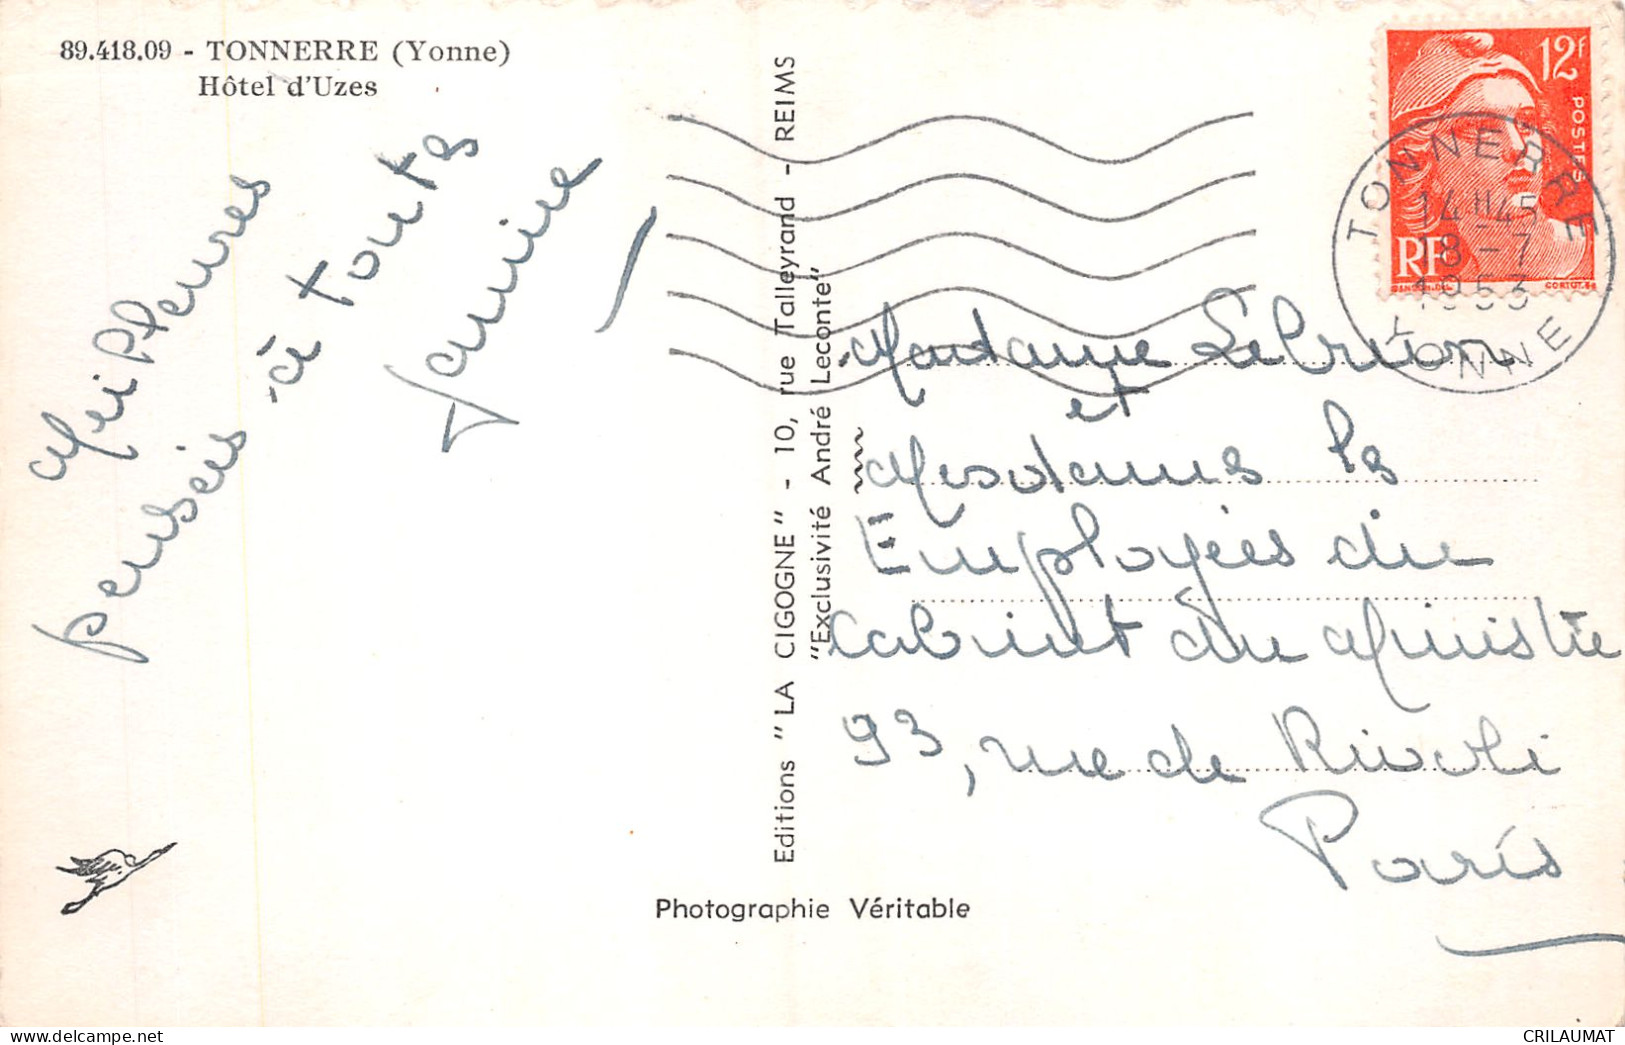 89.418.09 - TONNERRE (Yonne)
Hôtel d'Uzes
Meilleures
pensées à toutes
Janine
Editions "LA CIGOGNE" - 10, rue Talleyrand - REIMS
"Exclusivité André Leconte"
12F
POSTES
RF
GANDON.DEL
CORTOT.SC
TONNERRE
14H45
18-7
1953
YONNE
Madame Lebrun
et
Mesdames les
Employées du
Cabinet du Ministre
93, rue de Rivoli
Paris
Photographie Véritable
CRILAUMAT